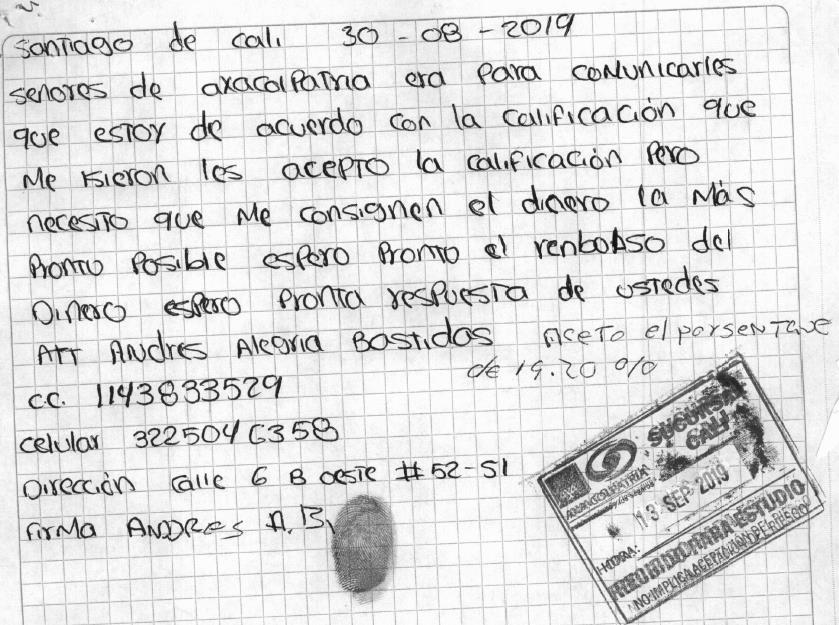 santiago de cali 30 - 08 - 2019
señores de axacolpatria era para comunicarles
que estoy de acuerdo con la calificación que
Me hicieron les acepto la calificación Pero
necesito que Me consignen el dinero la Más
Pronto Posible espero Pronto el renbolso del
Dinero espero Pronta respuesta de ustedes
ATT ANDres Alegria Bastidas Aceto el porsentaue
de 19.20 %
c.c. 1143833529
celular 3225046358
Dirección calle 6 B oeste # 52-51
Firma ANDRES A. B.
SUCURSAL
CALI
AXA COLPATRIA
13 SEP 2019
HORA:
RECIBIDO PARA ESTUDIO
NO IMPLICA ACEPTACION DE